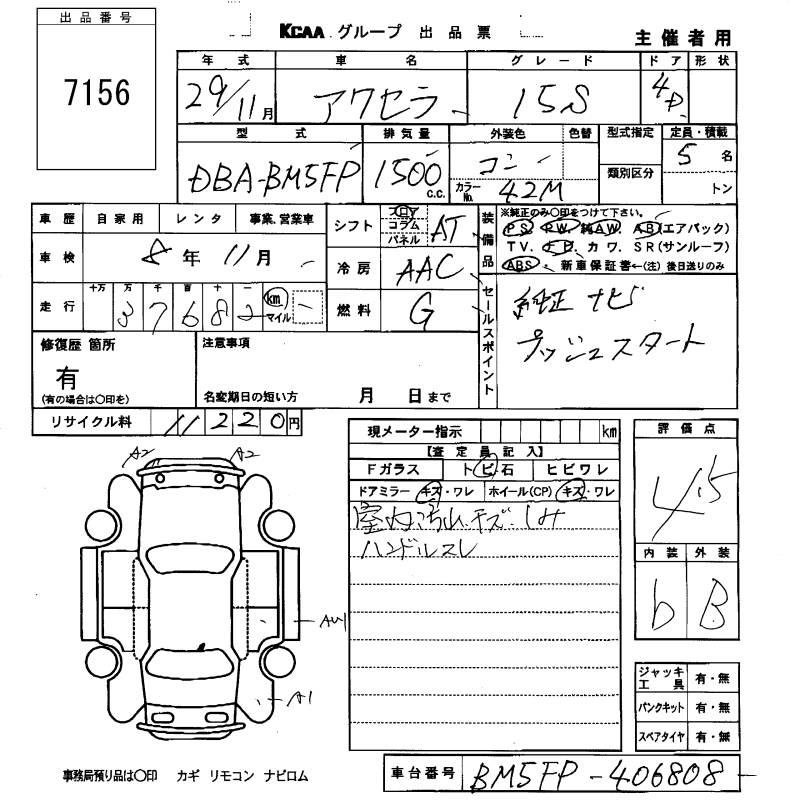 出品番号
7156
KCAA グループ 出品票
主催者用
年式 車名 グレード ドア 形状
29/11月 アクセラ 15S 4D
型式 排気量 外装色 色替 型式指定 定員・積載
DBA-BM5FP 1500 c.c. コン 5名
カラーNo. 42M 類別区分 トン
車歴 自家用 レンタ 事業、営業車
シフト フロア コラム パネル AT
装備品
※純正のみ〇印をつけて下さい。
PS PW 純AW AB(エアバック)
TV. カワ. SR(サンルーフ)
ABS 新車保証書←(注)後日送りのみ
車検 8年 11月
冷房 AAC
走行 十万 万 千 百 十 一 km マイル
3 7 6 8 2
燃料 G
セールスポイント
純正ナビ
プッシュスタート
修復歴 箇所
有
(有の場合は〇印を)
注意事項
名変期日の短い方 月 日まで
リサイクル料 11220円
現メーター指示 km
【査定員記入】
Fガラス トビ石 ヒビワレ
ドアミラー キズ・ワレ ホイール(CP) キズ・ワレ
室内汚れキズ・しみ
ハンドルスレ
評価点
4.5
内装 外装
b B
A2 A2
AU1
A1
ジャッキ工具 有・無
パンクキット 有・無
スペアタイヤ 有・無
事務局預り品は〇印 カギ リモコン ナビロム
車台番号 BM5FP-406808